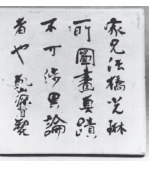 家兄法橋光琳
所圖畫真蹟
不可涉異論
者也 乾山深省觀